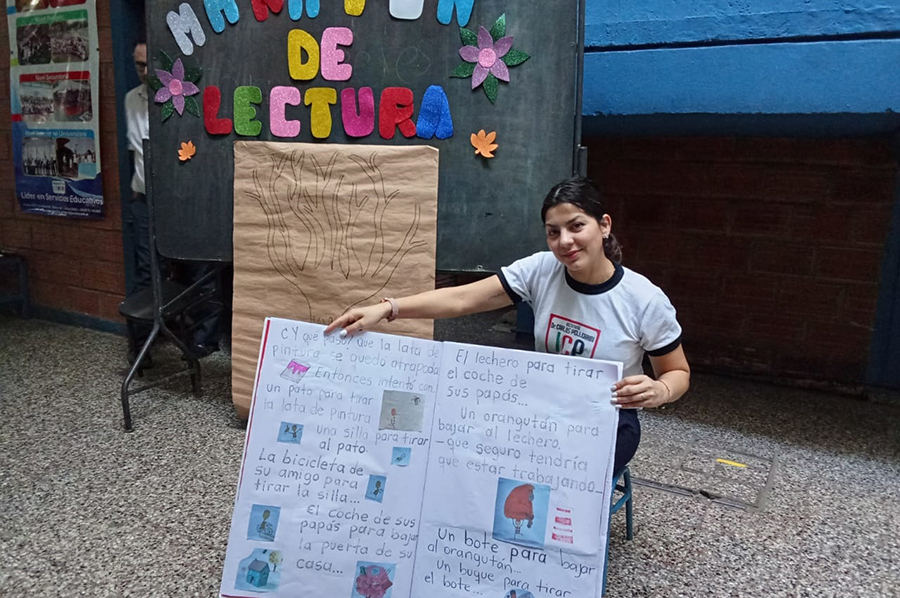 MARATÓN
DE
LECTURA
Líder en Servicios Educativos
Dr. CARLOS PELLEGRINI
ICP
¿Y que pasó? que la lata de
pintura se quedo atrapada
Entonces intentó con
un pato para tirar
la lata de pintura
una silla para tirar
al pato.
La bicicleta de
su amigo para
tirar la silla...
El coche de sus
papás para bajar
la puerta de su
casa...
El lechero para tirar
el coche de
sus papás...
Un orangután para
bajar al lechero.
-que seguro tendría
que estar trabajando-
Un bote para bajar
al orangután...
Un buque para tirar
el bote...